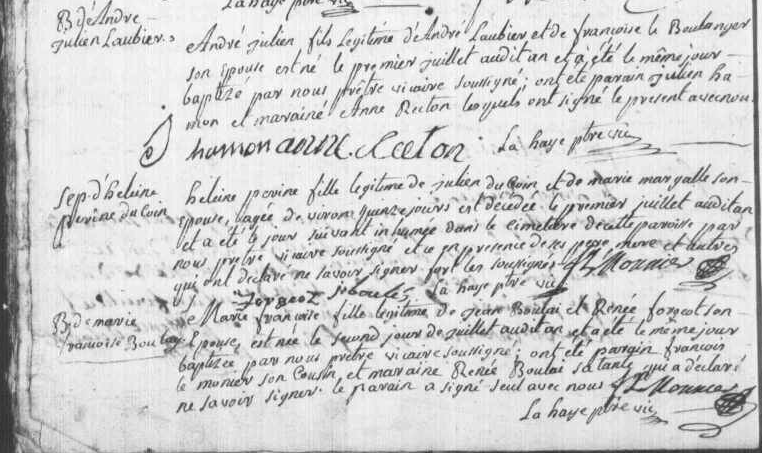 La haye ptre vic
B. d'André
Julien Laubier.
André Julien fils Legitime d'André Laubier et de francoise le Boulanger
son Epouse est né le premier Juillet audit an et a été le même jour
baptizé par nous prêtre vicaire soussigné; ont été parain Julien ha-
mon et maraine Anne Recton lesquels ont signé le present avec nous.
J hamon anne Recton La haye ptre vic
Sep. d'heleine
perine du Coin
heleine perine fille legitime de julien du Coin et de marie margalle son
Epouse, agée de viron quenze jours est décedée le premier juillet audit an
et a été le jour suivant inhumée dans le cimetiere de cette paroisse par
nous prêtre vicaire soussigné et ce en presence de ses pere, mere et autres
qui ont declaré ne savoir signer fors les soussignés f. L Monnier
La haye ptre vic
B. de marie
francoise Boulay
Marie francoise fille legitime de Jean Boulai et Renée forgeot son
Epouse, est née le second jour de Juillet audit an et a été le meme jour
baptizée par nous prêtre vicaire soussigné; ont été parain francois
le monier son Cousin, et maraine Renée Boulai sa tante qui a déclaré
ne savoir signer. le parain a signé seul avec nous f. L Monnier
La haye ptre vic